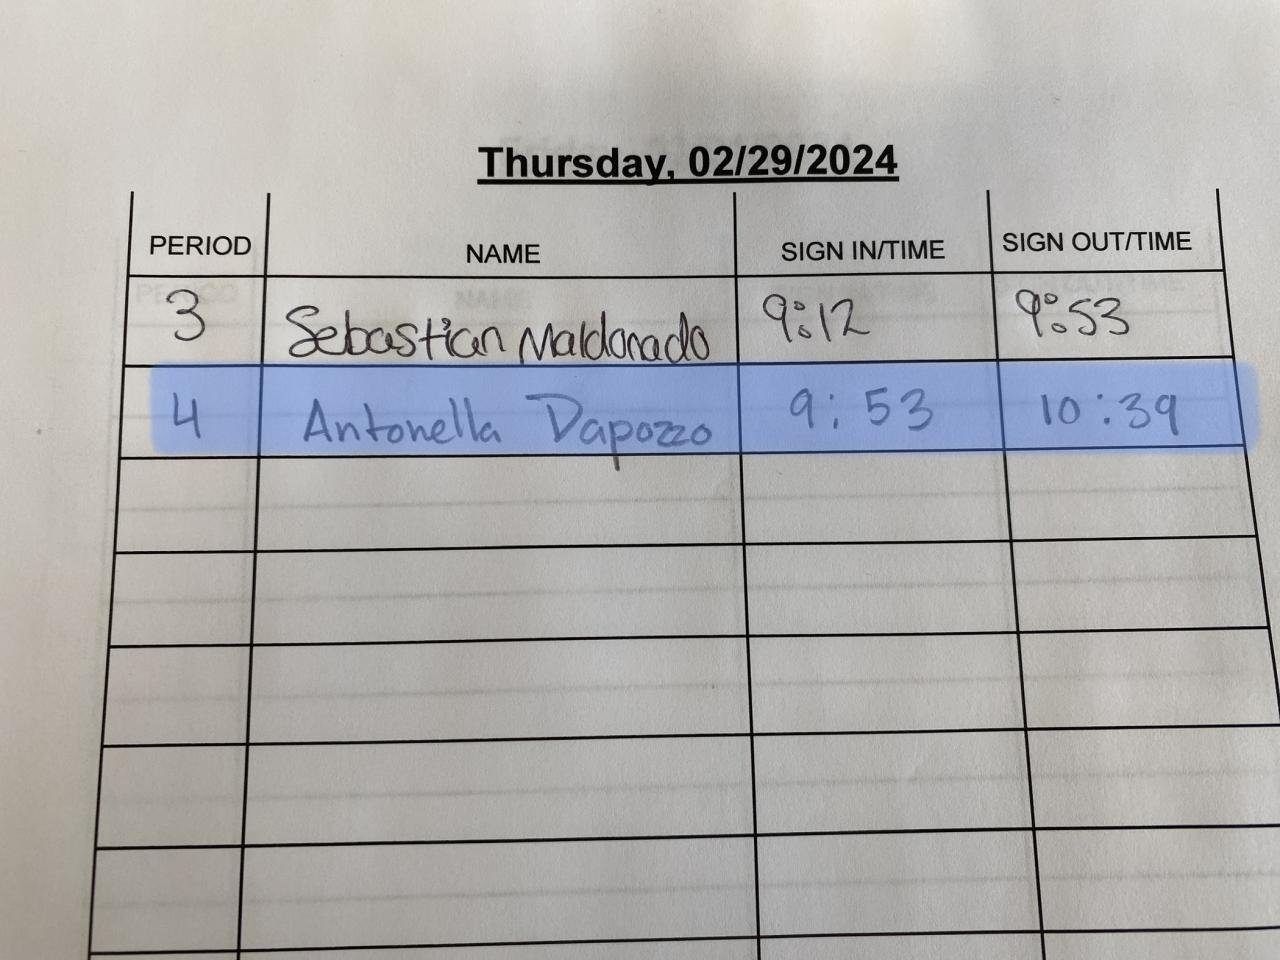 Thursday, 02/29/2024
PERIOD NAME SIGN IN/TIME SIGN OUT/TIME
3 Sebastian Maldonado 9:12 9:53
4 Antonella Dapozzo 9:53 10:39